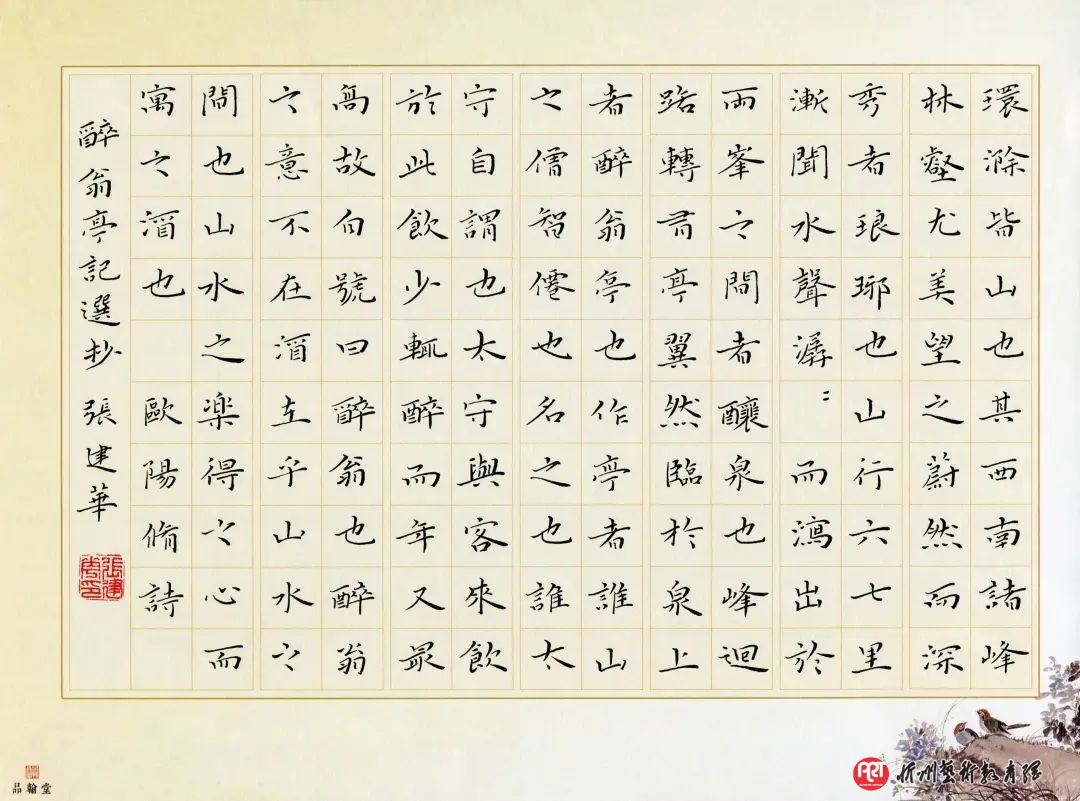 環滁皆山也其西南諸峰
林壑尤美望之蔚然而深
秀者琅琊也山行六七里
漸聞水聲潺〻而瀉出於
兩峯之間者釀泉也峰迴
路轉有亭翼然臨於泉上
者醉翁亭也作亭者誰山
之僧智僊也名之也誰太
守自謂也太守與客來飲
於此飲少輒醉而年又最
高故自號曰醉翁也醉翁
之意不在酒在乎山水之
間也山水之楽得之心而
寓之酒也 歐陽脩詩
醉翁亭記選抄 張建華
張建華印
品翰堂
ART